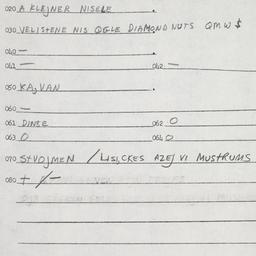 020 A KLEJNER NISELE .
030 VELISTENE NIS OGLE DIAMOND NUTS QMW $
040 — .
041 — 042 —
050 KAJVAN .
060 —
061 DINEE 062 O
063 O 064 O
070 STVOJMEN / LISICKES AZEJ VI MUSTRUMS
080 +